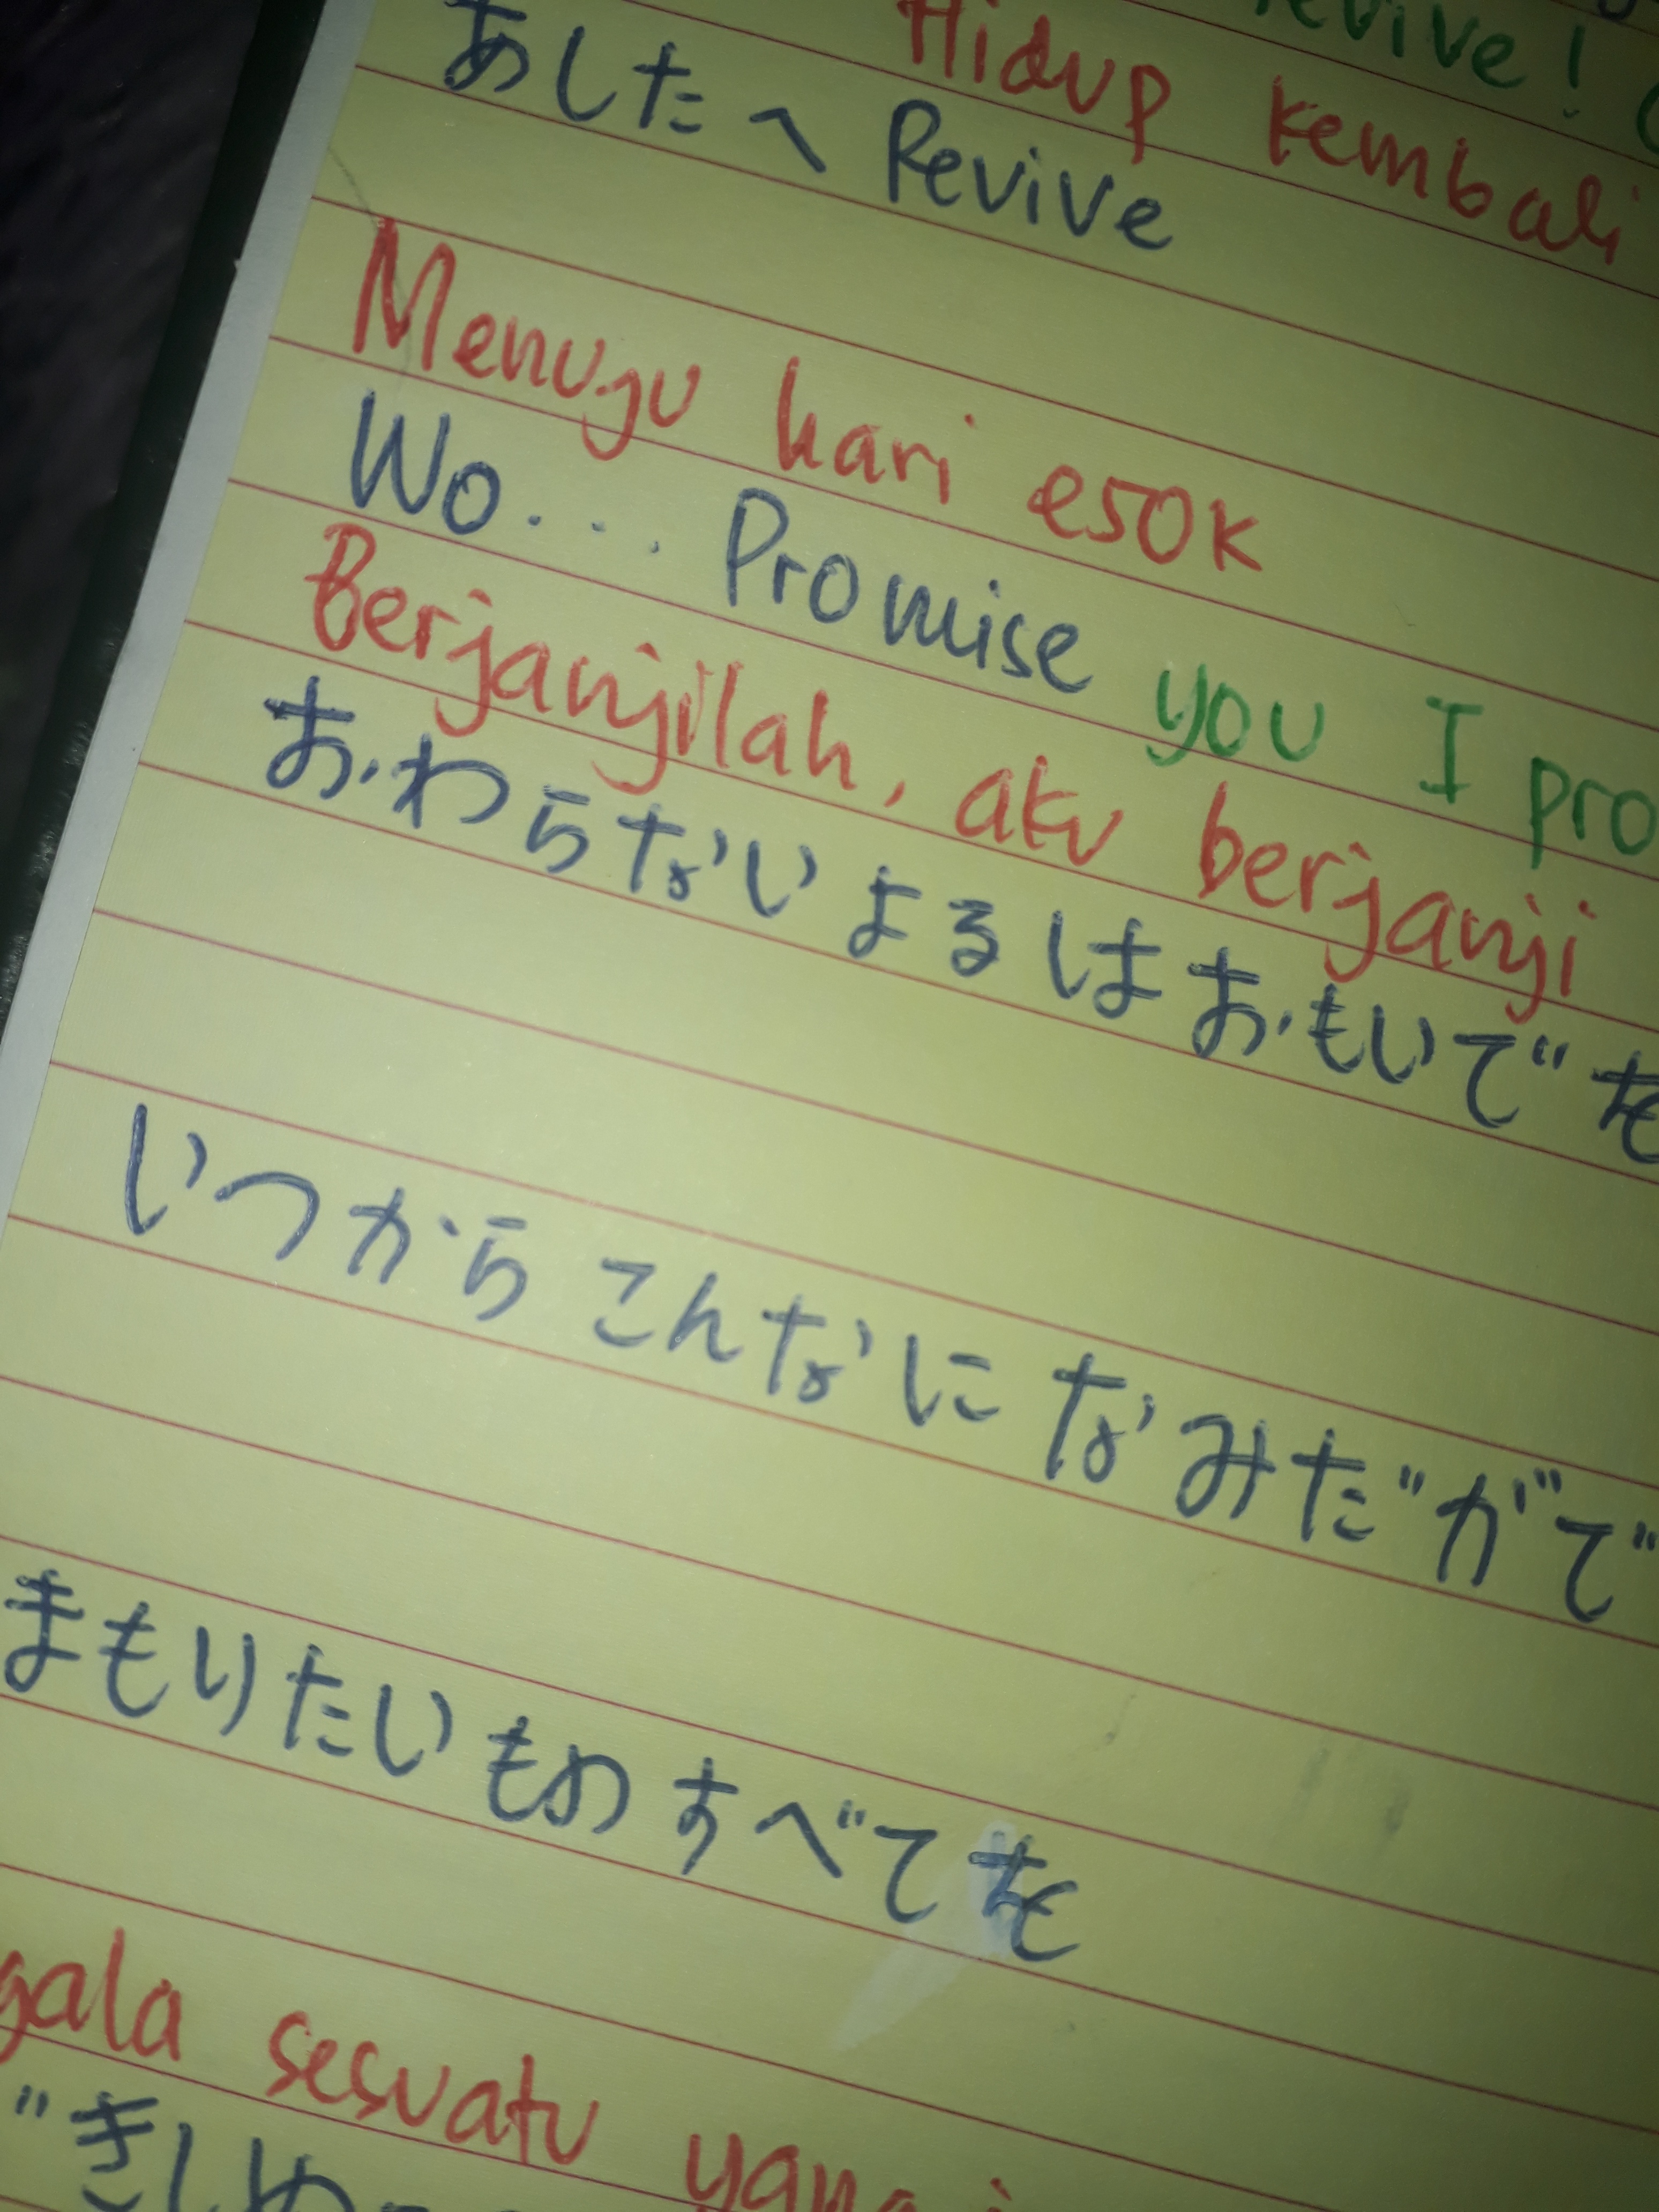 Revive!
Hidup kembali
あしたへ Revive
Menuju hari esok
Wo... Promise you I pro
Berjanjilah, aku berjanji
おわらない よる は おもいで を
いつから こんなに なみだ が で
まもりたい もの すべて を
gala sesuatu yang
きしめ